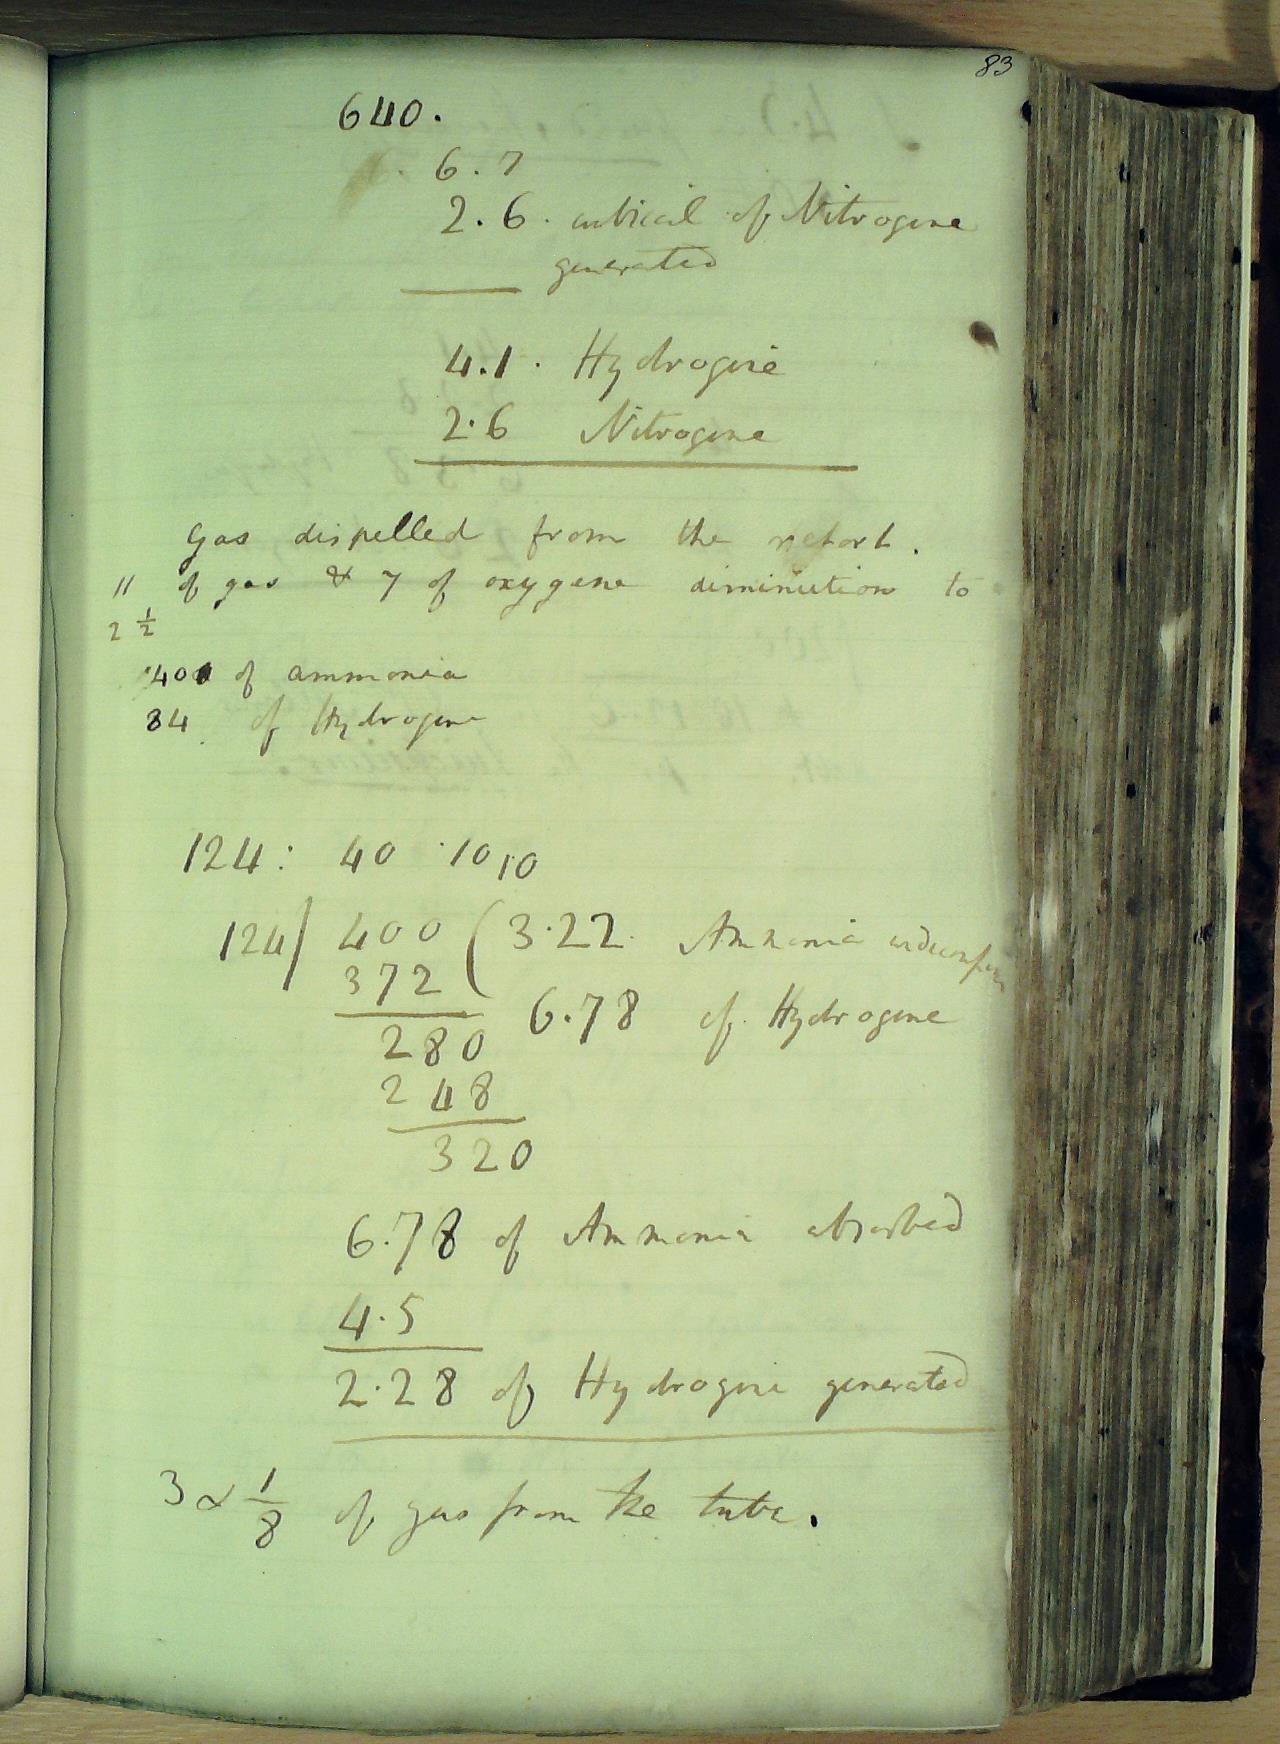 83
640.
6.7
2.6. cubical of Nitrogene
generated
4.1. Hydrogene
2.6 Nitrogene
Gas dispelled from the retort.
11 of gas & 7 of oxygene diminution to
2 1/2
40 of ammonia
84 of Hydrogene
124: 40 : 10 10
124) 400 ( 3.22 Ammonia
372
6.78 of Hydrogene
280
248
320
6.78 of Ammonia absorbed
4.5
2.28 of Hydrogene generated
3 & 1/8 of gas from the tube.